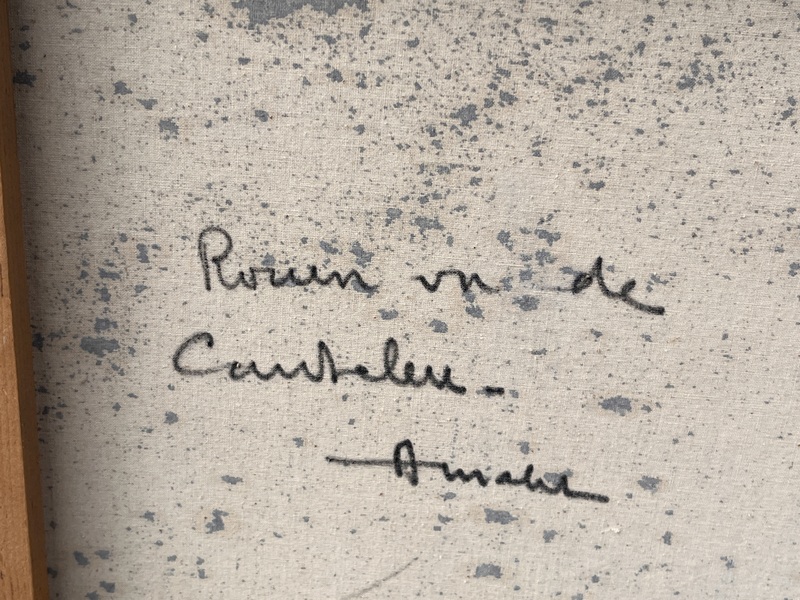 Rouen vu de
Canteleu.